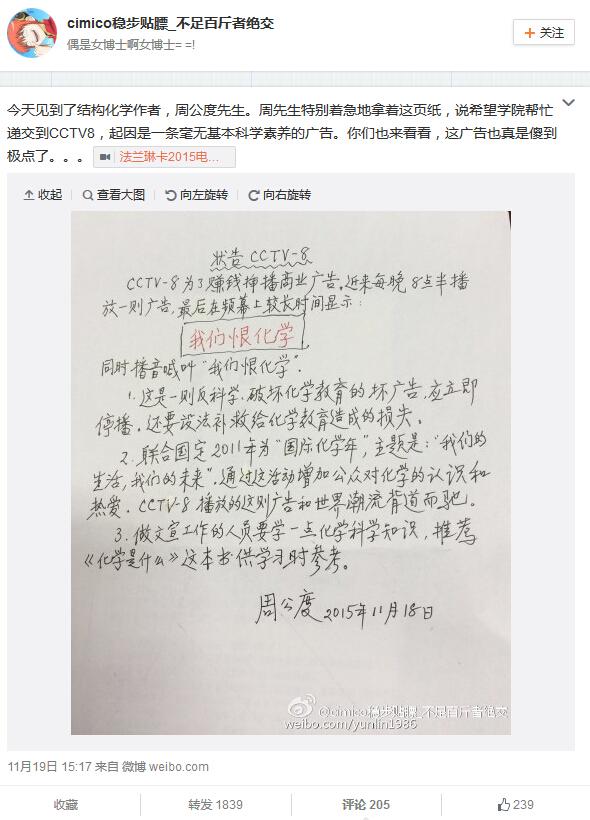 cimico稳步贴膘_不足百斤者绝交
偶是女博士啊女博士= =!
+ 关注
今天见到了结构化学作者，周公度先生。周先生特别着急地拿着这页纸，说希望学院帮忙
递交到CCTV8，起因是一条毫无基本科学素养的广告。你们也来看看，这广告也真是傻到
极点了。。。 法兰琳卡2015电...
收起 查看大图 向左旋转 向右旋转
状告 CCTV-8
CCTV-8 为了赚钱挿播商业广告。近来每晚8点半播
放一则广告，最后在频幕上较长时间显示：
我们恨化学
同时播音喊叫"我们恨化学".
1. 这是一则反科学、破坏化学教育的坏广告，应立即
停播。还要设法补救给化学教育造成的损失。
2. 联合国定2011年为"国际化学年"，主题是："我们的
生活，我们的未来"。通过这活动增加公众对化学的认识和
热爱。CCTV-8播放的这则广告和世界潮流背道而驰。
3. 做文宣工作的人员要学一点化学科学知识，推荐
《化学是什么》这本书供学习时参考。
周公度 2015年11月18日
@cimico稳步贴膘_不足百斤者绝交
weibo.com/yunlin1986
11月19日 15:17 来自 微博 weibo.com
收藏 转发 1839 评论 205 239